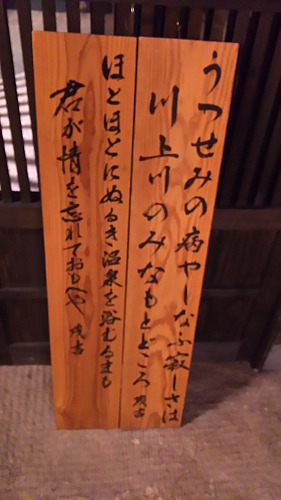 うつせみの病やしなふ寂しさは
川上川のみなもとどころ 茂吉
ほとほとにぬるき温泉を浴むるまも
君が情を忘れておもへや 茂吉